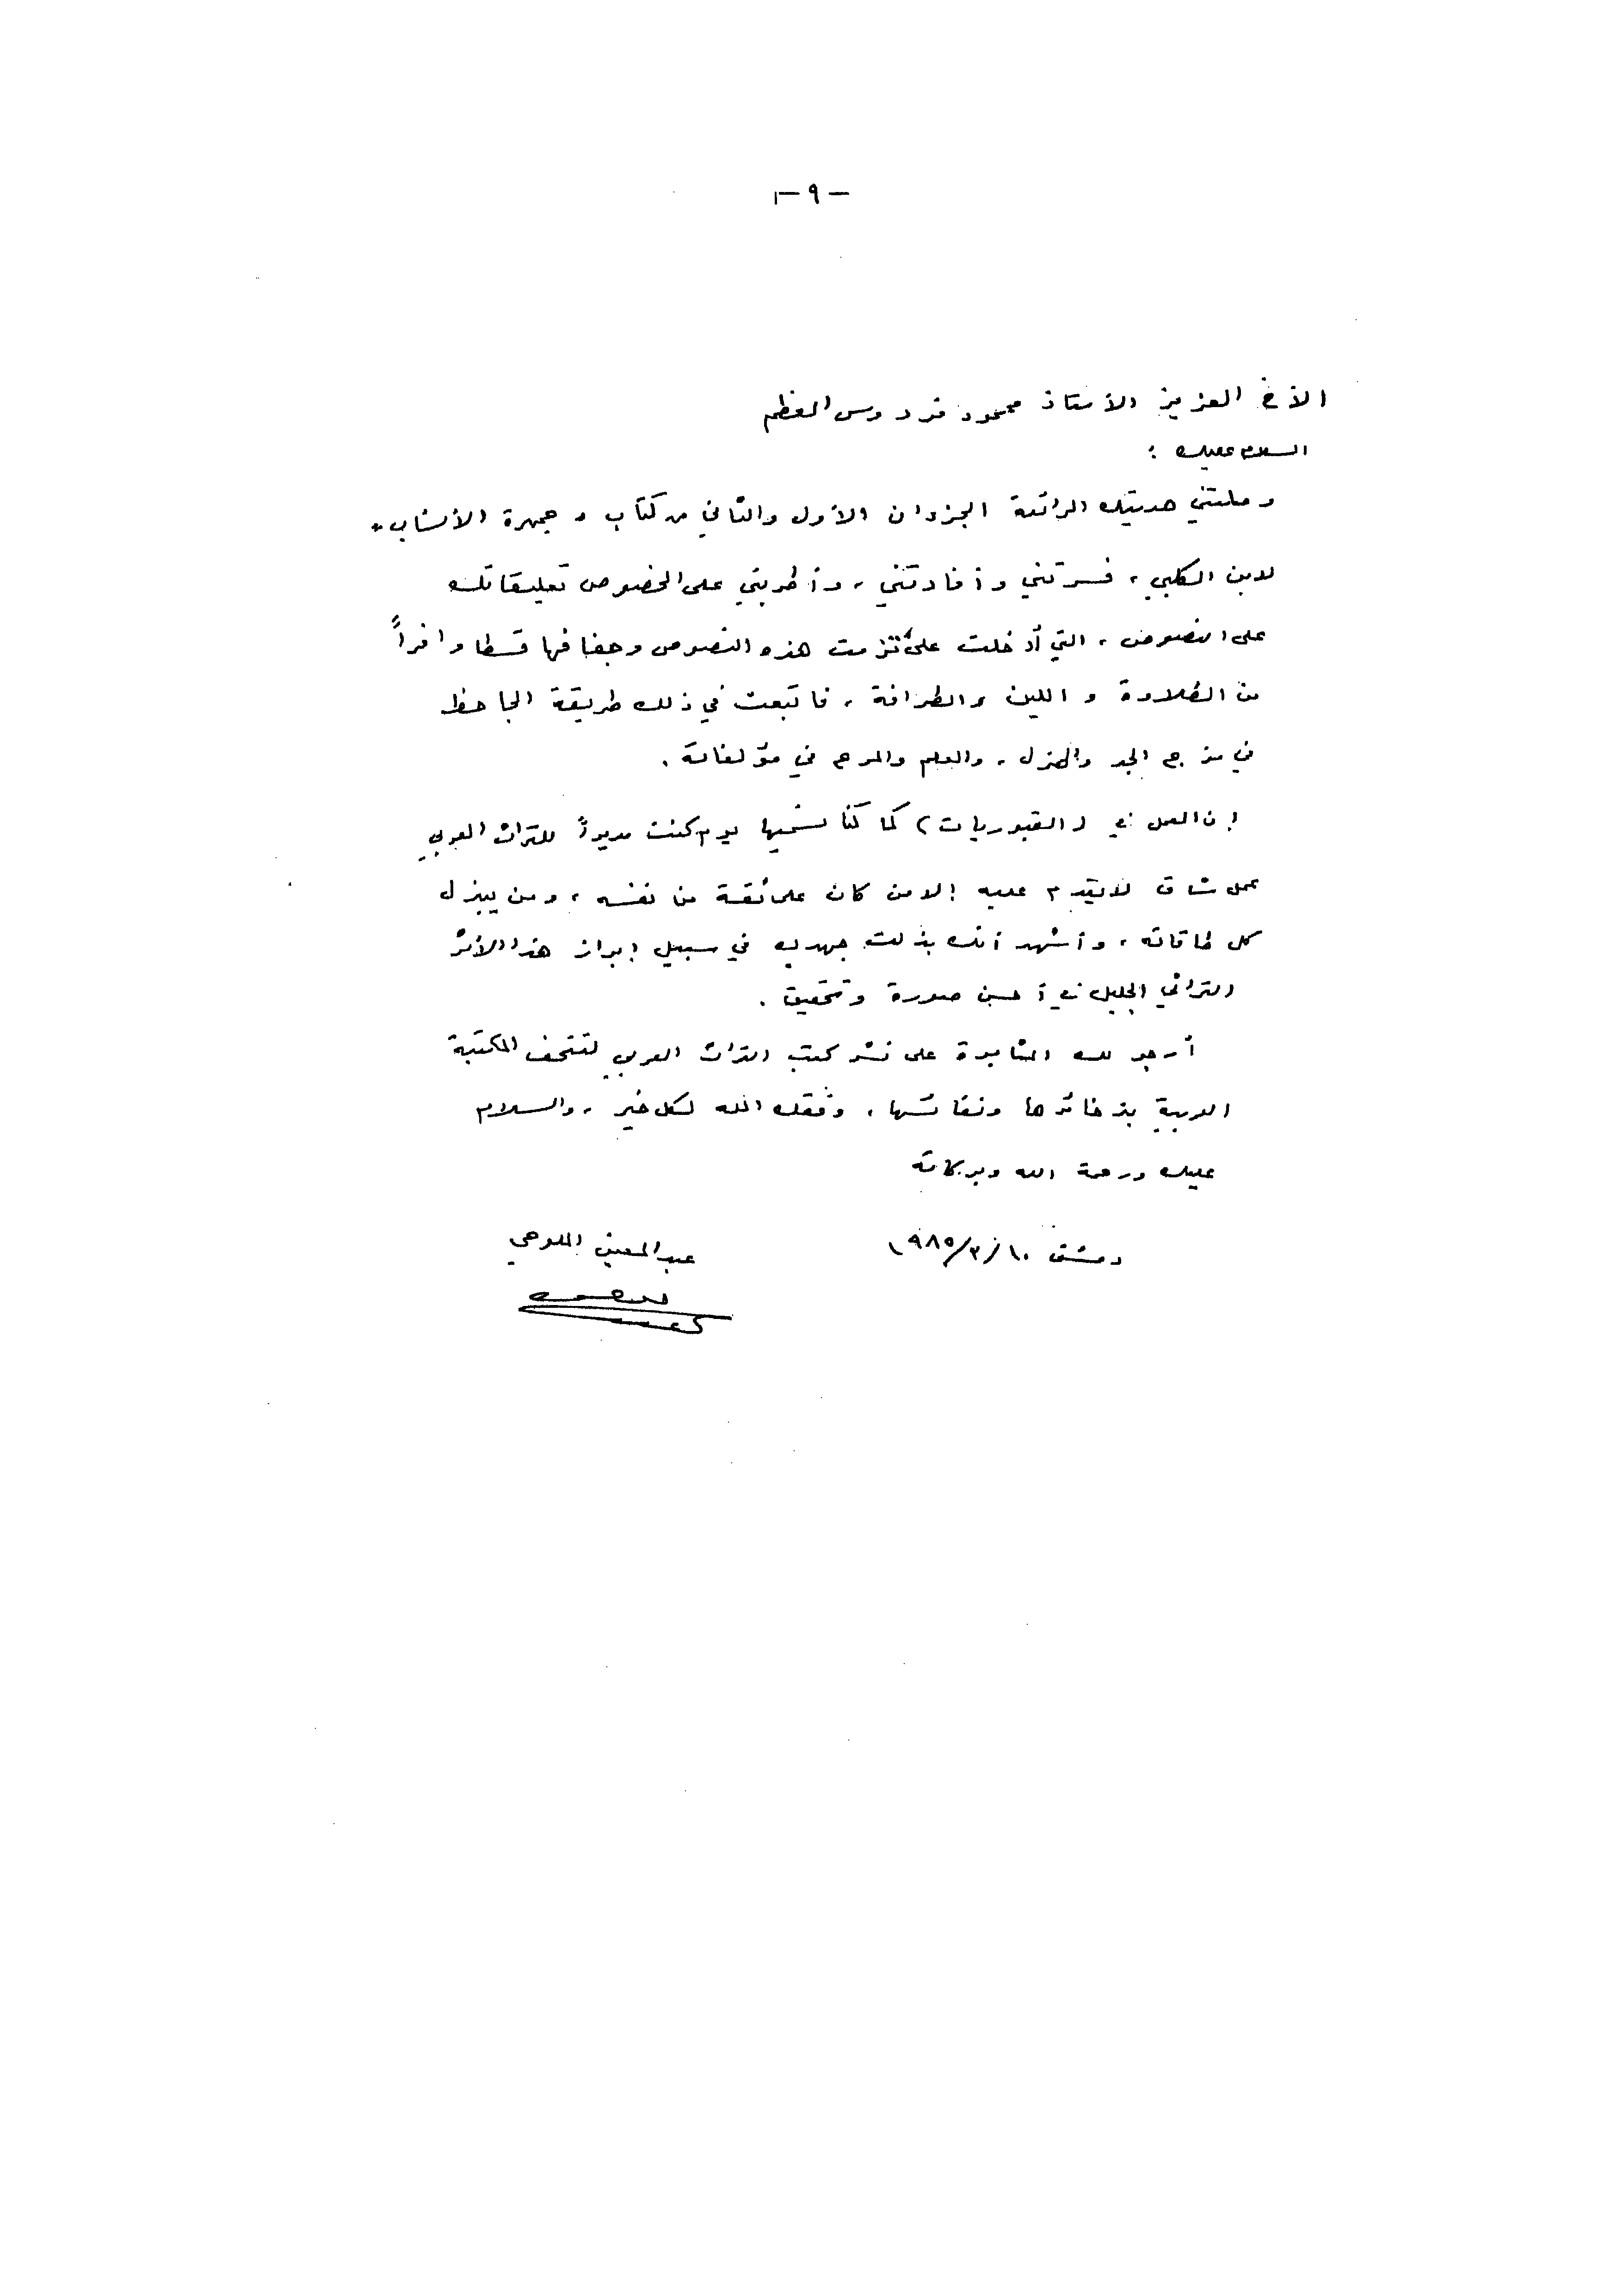 - ٩ -
الأخ العزيز الأستاذ محمود فردوس العظم
السلام عليك :
وصلتني هديتك الرائعة الجزءان الأول والثاني من كتاب « جمهرة الأنساب »
لابن الكلبي ، فسرتني وأفادتني ، وأطربني على الخصوص تعليقاتك
على النصوص ، التي أدخلت على تزمت هذه النصوص وجفافها قسطا وافراً
من الطلاوة و اللين والطرافة ، فاتبعت في ذلك طريقة الجاحظ
في مزج الجد والهزل ، والعلم والمرح في مؤلفاته .
إن العمل في ( القبوريات ) كما كنا نسميها يوم كنت مديراً للتراث العربي
عمل شاق لا يقدم عليه إلا من كان على ثقة من نفسه ، ومن يبذل
كل طاقاته ، وأشهد أنك بذلت جهدك في سبيل إبراز هذا الأثر
التراثي الجليل في أحسن صورة وتحقيق .
أرجو لك المثابرة على نشر كتب التراث العربي لتتحف المكتبة
العربية بذخائرها ونفائسها ، وفقك الله لكل خير ، والسلام
عليك ورحمة الله وبركاته
دمشق ١٠/٣/١٩٨٥ عبد المعين الملوحي